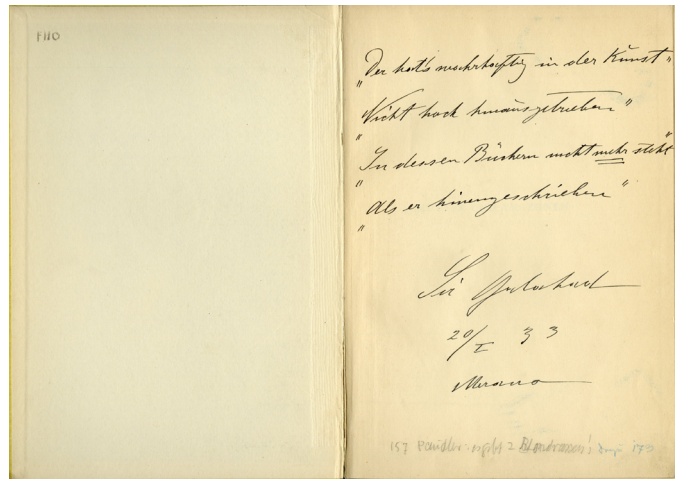 F110
„Der hat's wahrhaftig in der Kunst"
„Nicht hoch hinausgetrieben"
„In dessen Büchern nicht mehr steht"
„Als er hineingeschrieben"
Sir Galahad
20/I 33
Merano
157 2